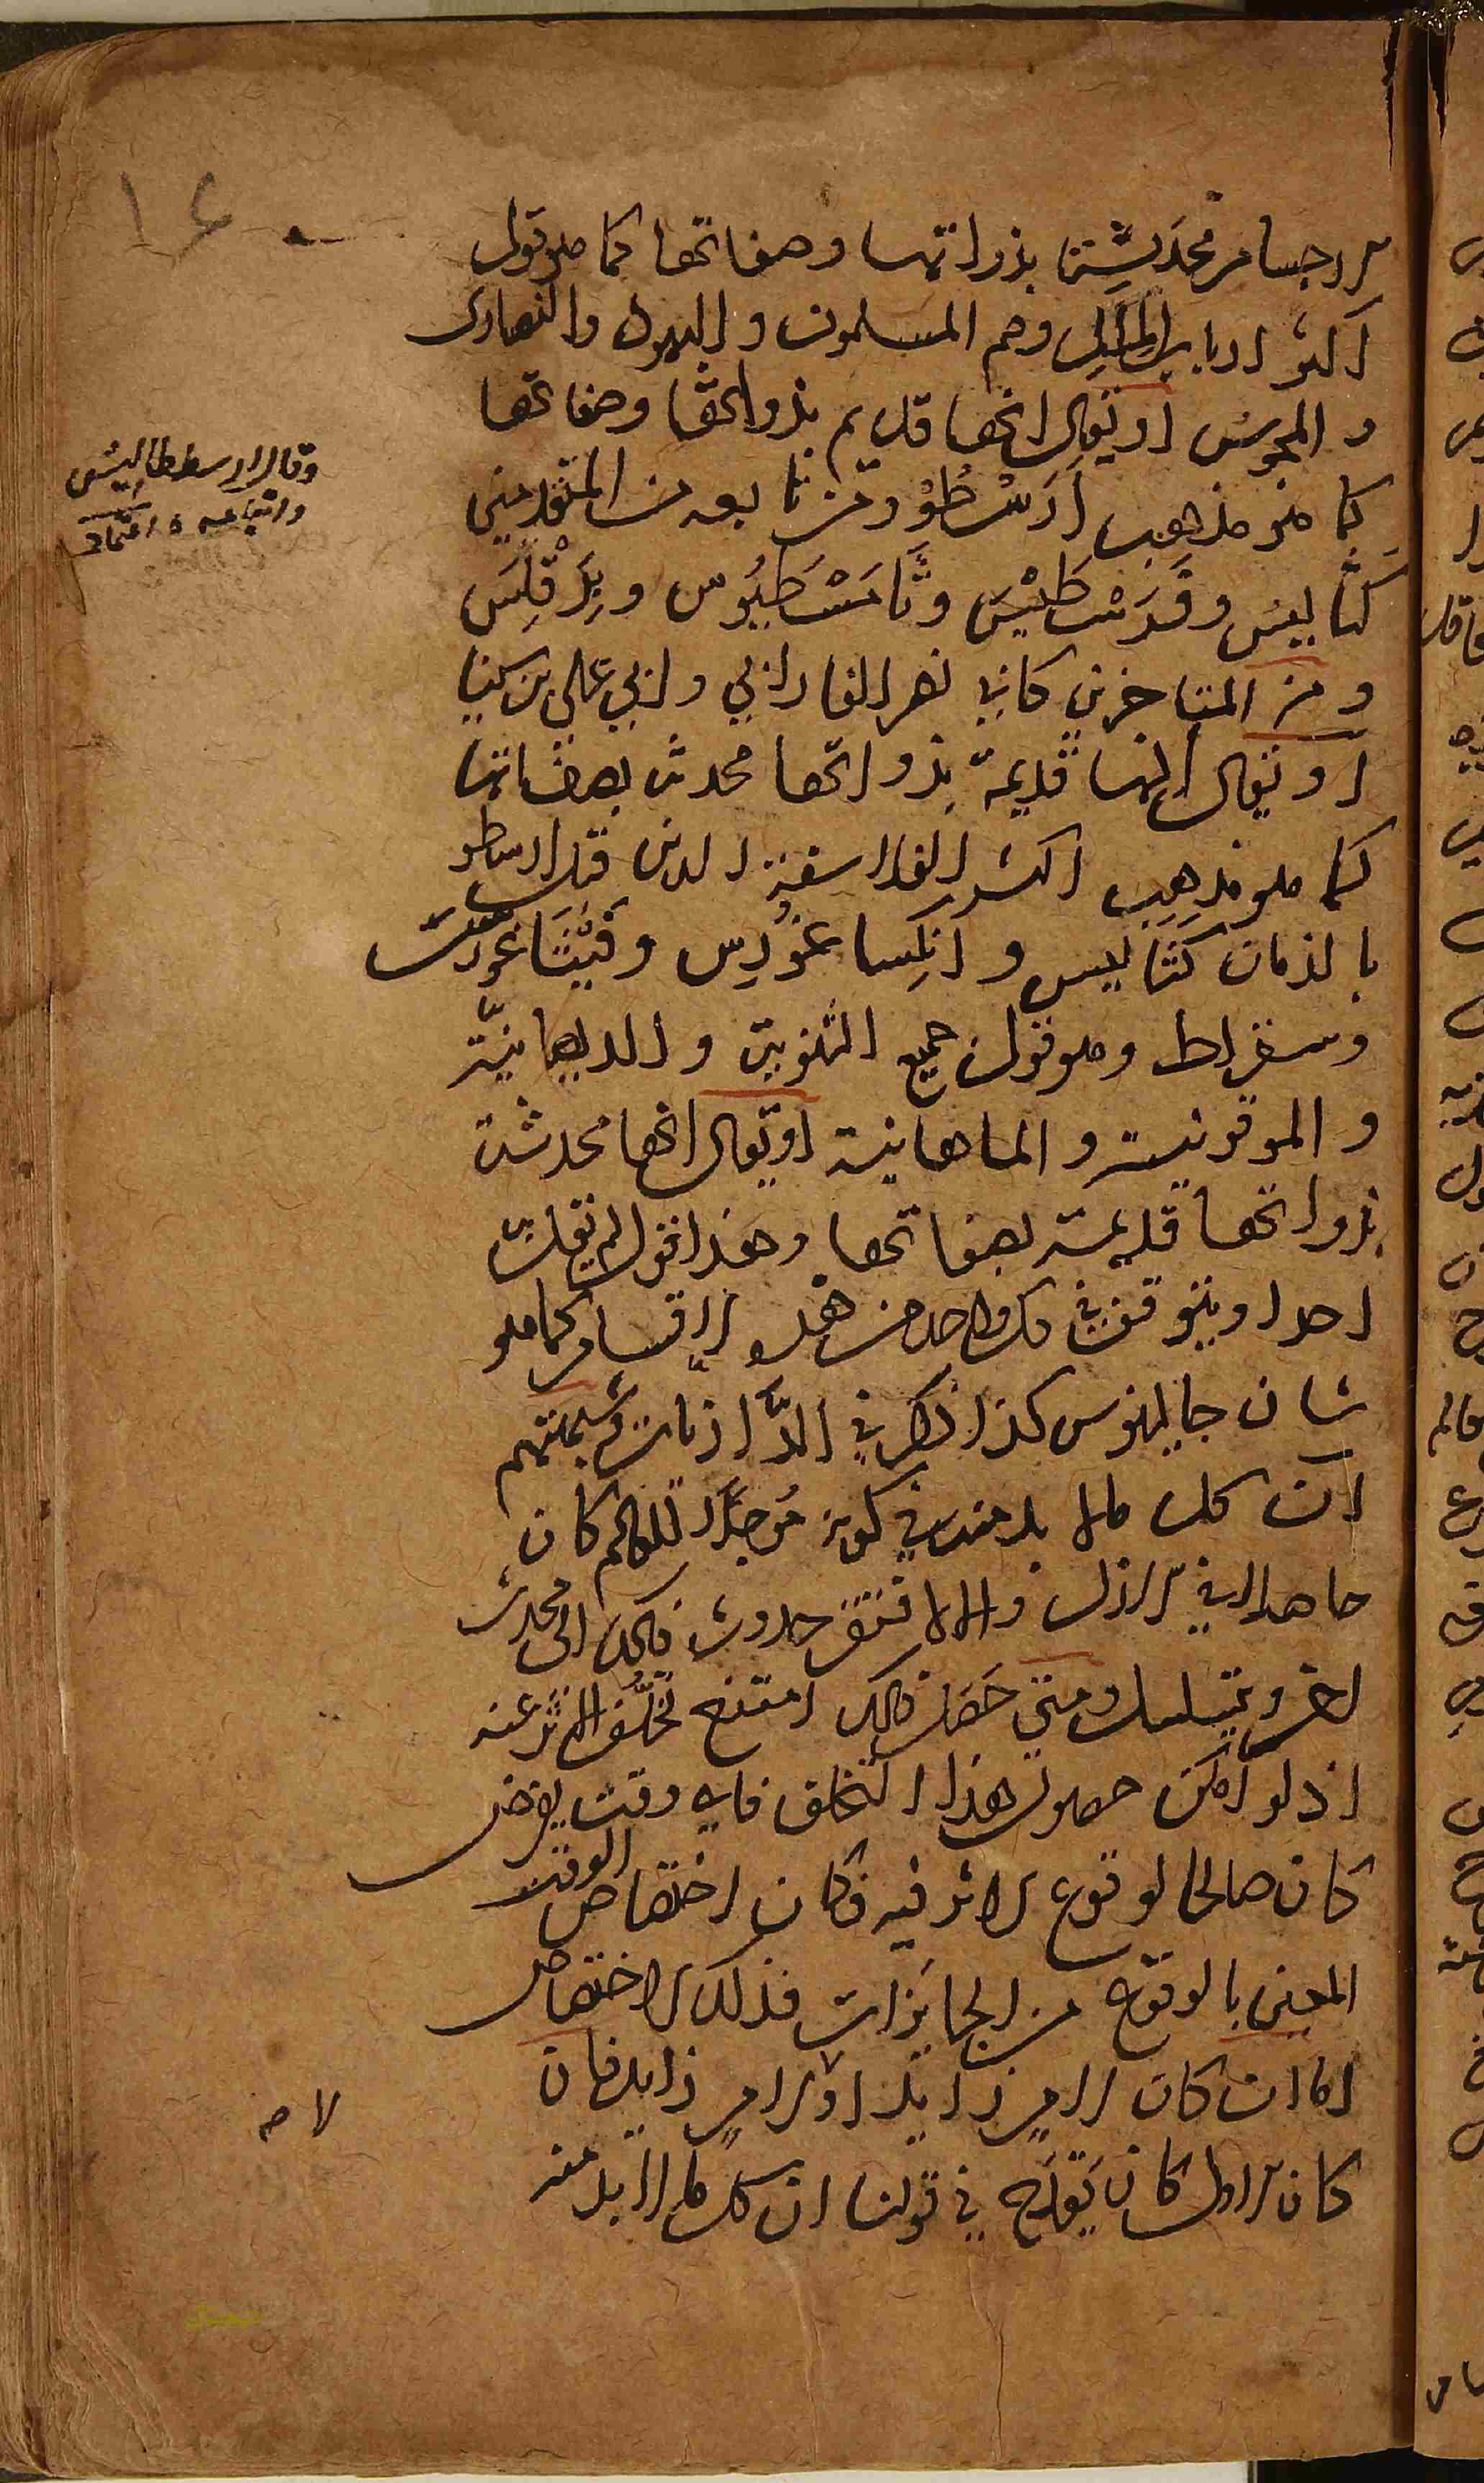 الاجسام محدثة بذواتها وصفاتها كما هو قول
اكثر ارباب الملل وهم المسلمون و اليهود والنصارى
و المجوس او يقال انها قديم بذواتها وصفاتها
كما هو مذهب اَرَسْطُوْ ومن تابعه من المتقدمين
كثاليس و وثَامَسْطِيُوس وبِرَقْلِسَ
ومن المتاخرين كابي نصر الفارابي وابي علي بن سينا
او يقال انها قديمة بذواتها محدث بصفاتها
كما هو مذهب اكثر الفلاسفة الدين قبل ارسطو
بالزمان كثاليس و انكساغورس وفيثاغورس
وسقراط وهو قول جميع الثنوية و الديصانية
و المرقونية و الماهانية او يقال انها محدثة
بذواتها قديمة بصفاتها وهذا قول لم يقل به
احد او يتوقف في كل واحد من هذه الاقسام كما هو
شان جالينوس كذا ذكر في
ان كل مالا بد منه في كونه موجدًا للعالم كان
حاصلا في الازل والا لافتقر حدوث ذلك الى محدث
اخر ويتسلسل ومتى حَصَل ذلك امتنع تخلّف الاثر عنه
اذ لو امكن حصول هذا التخلف فاي وقت يفرض
كان صالحا لوقوع الاثر فيه فكان اختصاص الوقت
المعين بالوقوع من الجايزات فذلك الاختصاص
اما ان كان لامر زايد او لا لامر زايد فان
كان الاول كان يقدح في قولنا ان كل ما لا بد منه
وقال ارسططاليس
واتباعه
لا ص
١٤